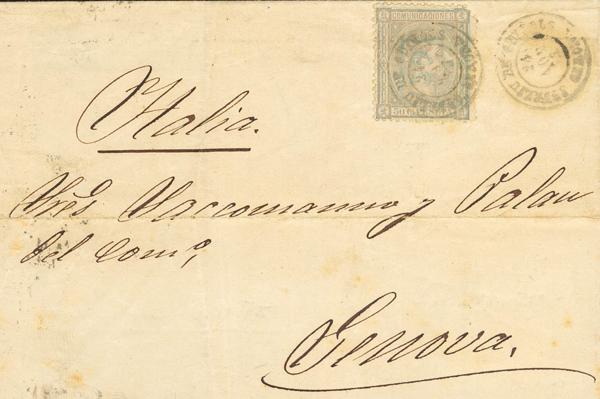 COMUNICACIONES
Italia.
Sres Vaccomanno y Palau
del Como,
Genova.